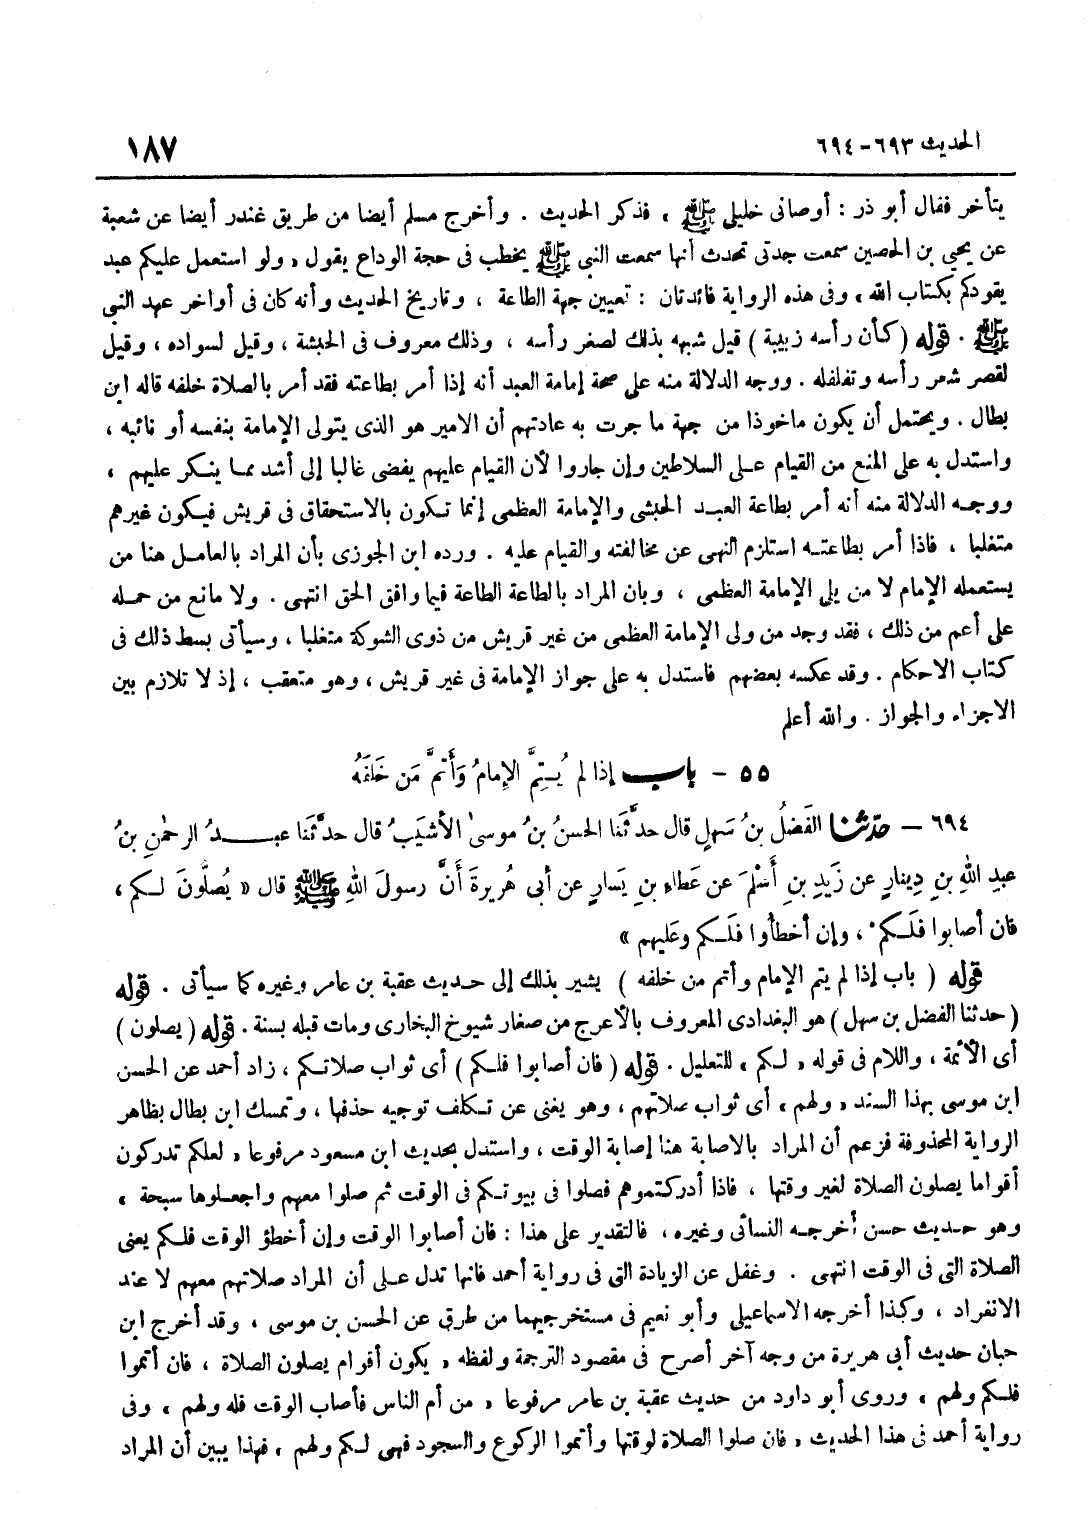 الحديث ٦٩٣ - ٦٩٤
١٨٧
يتأخر فقال أبو ذر : أوصانى خليلى ﷺ ، فذكر الحديث . وأخرج مسلم أيضا من طريق غندر أيضا عن شعبة
عن يحيى بن الحصين سمعت جدتى تحدث أنها سمعت النبى ﷺ يخطب فى حجة الوداع يقول « ولو استعمل عليكم عبد
يقودكم بكتاب الله » وفى هذه الرواية فائدتان : تعيين جهة الطاعة ، وتاريخ الحديث وأنه كان فى أواخر عهد النبى
ﷺ . قوله ( كأن رأسه زبيبة ) قيل شبهه بذلك لصغر رأسه ، وذلك معروف فى الحبشة ، وقيل لسواده ، وقيل
لقصر شعر رأسه وتفلفله . ووجه الدلالة منه على صحة إمامة العبد أنه إذا أمر بطاعته فقد أمر بالصلاة خلفه قاله ابن
بطال . ويحتمل أن يكون ماخوذا من جهة ما جرت به عادتهم أن الامير هو الذى يتولى الإمامة بنفسه أو نائبه ،
واستدل به على المنع من القيام على السلاطين وإن جاروا لأن القيام عليهم يفضى غالبا إلى أشد مما ينكر عليهم ،
ووجه الدلالة منه أنه أمر بطاعة العبد الحبشى والإمامة العظمى إنما تكون بالاستحقاق فى قريش فيكون غيرهم
متغلبا ، فاذا أمر بطاعته استلزم النهى عن مخالفته والقيام عليه . ورده ابن الجوزى بأن المراد بالعامل هنا من
يستعمله الإمام لا من يلى الإمامة العظمى ، وبان المراد بالطاعة الطاعة فيما وافق الحق انتهى . ولا مانع من حمله
على أعم من ذلك ، فقد وجد من ولى الإمامة العظمى من غير قريش من ذوى الشوكة متغلبا ، وسيأتى بسط ذلك فى
كتاب الاحكام . وقد عكسه بعضهم فاستدل به على جواز الإمامة فى غير قريش ، وهو متعقب ، إذ لا تلازم بين
الاجزاء والجواز . والله أعلم
٥٥ - باب إذا لم يُتِمَّ الإمامُ وَأَتَمَّ مَن خَلفَهُ
٦٩٤ - حدّثنا الفَضلُ بنُ سَهلٍ قال حدَّثَنا الحسنُ بنُ موسىٰ الأشيَبُ قال حدَّثَنا عبدُ الرحمٰنِ بنُ
عبدِ اللهِ بنِ دِينارٍ عن زَيدِ بنِ أَسْلَمَ عن عَطاءِ بنِ يَسارٍ عن أبى هُريرةَ أَنَّ رسولَ اللهِ ﷺ قال « يُصلُّونَ لكم ،
فان أصابوا فلَكم ، وإن أخطأوا فلَكم وعَليهم »
قوله ( باب إذا لم يتم الإمام وأتم من خلفه ) يشير بذلك إلى حديث عقبة بن عامر وغيره كما سيأتى . قوله
( حدثنا الفضل بن سهل ) هو البغدادى المعروف بالأعرج من صغار شيوخ البخارى ومات قبله بسنة . قوله ( يصلون )
أى الأئمة ، واللام فى قوله « لكم » للتعليل . قوله ( فان أصابوا فلكم ) أى ثواب صلاتكم ، زاد أحمد عن الحسن
ابن موسى بهذا السند « ولهم » أى ثواب صلاتهم ، وهو يغنى عن تكلف توجيه حذفها ، وتمسك ابن بطال بظاهر
الرواية المحذوفة فزعم أن المراد بالاصابة هنا إصابة الوقت ، واستدل بحديث ابن مسعود مرفوعا « لعلكم تدركون
أقواما يصلون الصلاة لغير وقتها ، فاذا أدركتموهم فصلوا فى بيوتكم فى الوقت ثم صلوا معهم واجعلوها سبحة »
وهو حديث حسن أخرجه النسائى وغيره ، فالتقدير على هذا : فان أصابوا الوقت وإن أخطؤ الوقت فلكم يعنى
الصلاة التى فى الوقت انتهى . وغفل عن الزيادة التى فى رواية أحمد فانها تدل على أن المراد صلاتهم معهم لا عند
الانفراد ، وكذا أخرجه الاسماعيلى وأبو نعيم فى مستخرجيهما من طرق عن الحسن بن موسى ، وقد أخرج ابن
حبان حديث أبى هريرة من وجه آخر أصرح فى مقصود الترجمة ولفظه « يكون أقوام يصلون الصلاة ، فان أتموا
فلكم ولهم » وروى أبو داود من حديث عقبة بن عامر مرفوعا « من أم الناس فأصاب الوقت فله ولهم » وفى
رواية أحمد فى هذا الحديث « فان صلوا الصلاة لوقتها وأتموا الركوع والسجود فهى لكم ولهم » فهذا يبين أن المراد